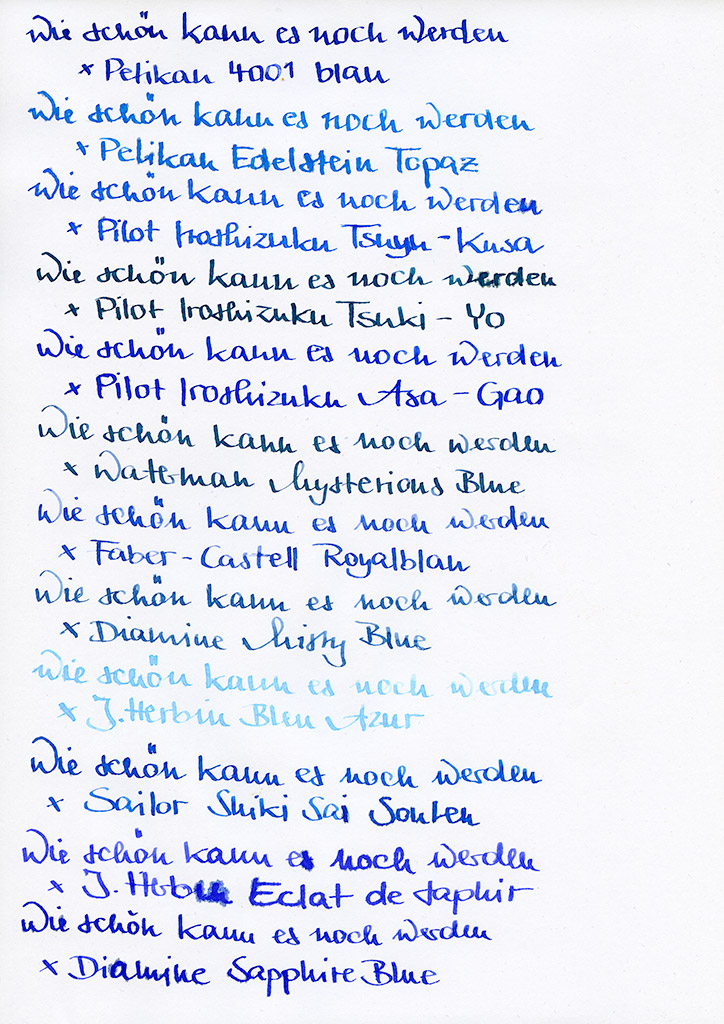 Wie schön kann es noch werden
x Pelikan 4001 blau
Wie schön kann es noch werden
x Pelikan Edelstein Topaz
Wie schön kann es noch werden
x Pilot Iroshizuku Tsuyu-Kusa
Wie schön kann es noch werden
x Pilot Iroshizuku Tsuki-Yo
Wie schön kann es noch werden
x Pilot Iroshizuku Asa-Gao
Wie schön kann es noch werden
x Waterman Mysterious Blue
Wie schön kann es noch werden
x Faber-Castell Royalblau
Wie schön kann es noch werden
x Diamine Misty Blue
Wie schön kann es noch werden
x J. Herbin Bleu Azur
Wie schön kann es noch werden
x Sailor Shiki Sai Souten
Wie schön kann es noch werden
x J. Herbin Eclat de Saphir
Wie schön kann es noch werden
x Diamine Sapphire Blue